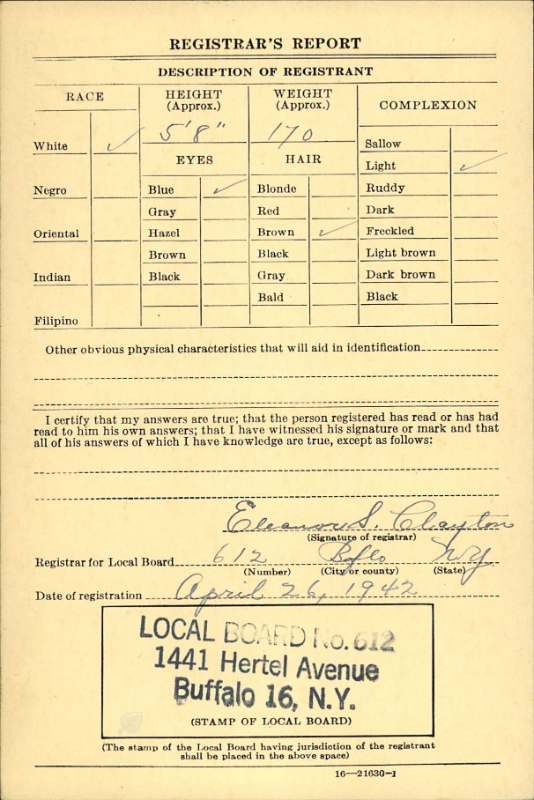 REGISTRAR'S REPORT
DESCRIPTION OF REGISTRANT
RACE
HEIGHT
(Approx.)
WEIGHT
(Approx.)
COMPLEXION
5'8"
170
White ✓
Sallow
EYES
HAIR
Light ✓
Negro
Blue ✓
Blonde
Ruddy
Gray
Red
Dark
Oriental
Hazel
Brown ✓
Freckled
Brown
Black
Light brown
Indian
Black
Gray
Dark brown
Bald
Black
Filipino
Other obvious physical characteristics that will aid in identification
I certify that my answers are true; that the person registered has read or has had
read to him his own answers; that I have witnessed his signature or mark and that
all of his answers of which I have knowledge are true, except as follows:
Eleanor S. Clayton
(Signature of registrar)
Registrar for Local Board 612 Bflo NY
(Number) (City or county) (State)
Date of registration April 26, 1942
LOCAL BOARD No. 612
1441 Hertel Avenue
Buffalo 16, N.Y.
(STAMP OF LOCAL BOARD)
(The stamp of the Local Board having jurisdiction of the registrant
shall be placed in the above space)
16—21630-1